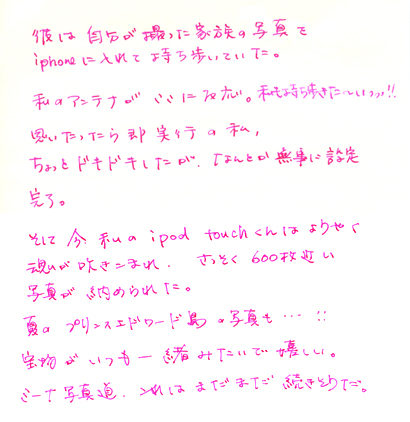 彼は自分が撮った家族の写真を
iphoneに入れて持ち歩いていた。
私のアンテナがここに反応。私も持ち歩きた〜いっっ!!
思いたったら即実行の私、
ちょっとドキドキしたが、なんとか無事に設定
完了。
そして今私のipod touchくんはようやく
魂が吹きこまれ、さっそく600枚近い
写真が納められた。
夏のプリンスエドワード島の写真も…!!
宝物がいつも一緒みたいで嬉しい。
ミーナ写真道、これはまだまだ続きそうだ。